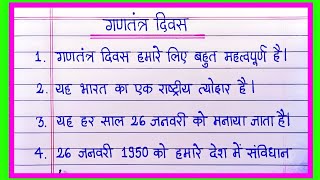 गणतंत्र दिवस
1. गणतंत्र दिवस हमारे लिए बहुत महत्वपूर्ण है।
2. यह भारत का एक राष्ट्रीय त्योहार है।
3. यह हर साल 26 जनवरी को मनाया जाता है।
4. 26 जनवरी 1950 को हमारे देश में संविधान